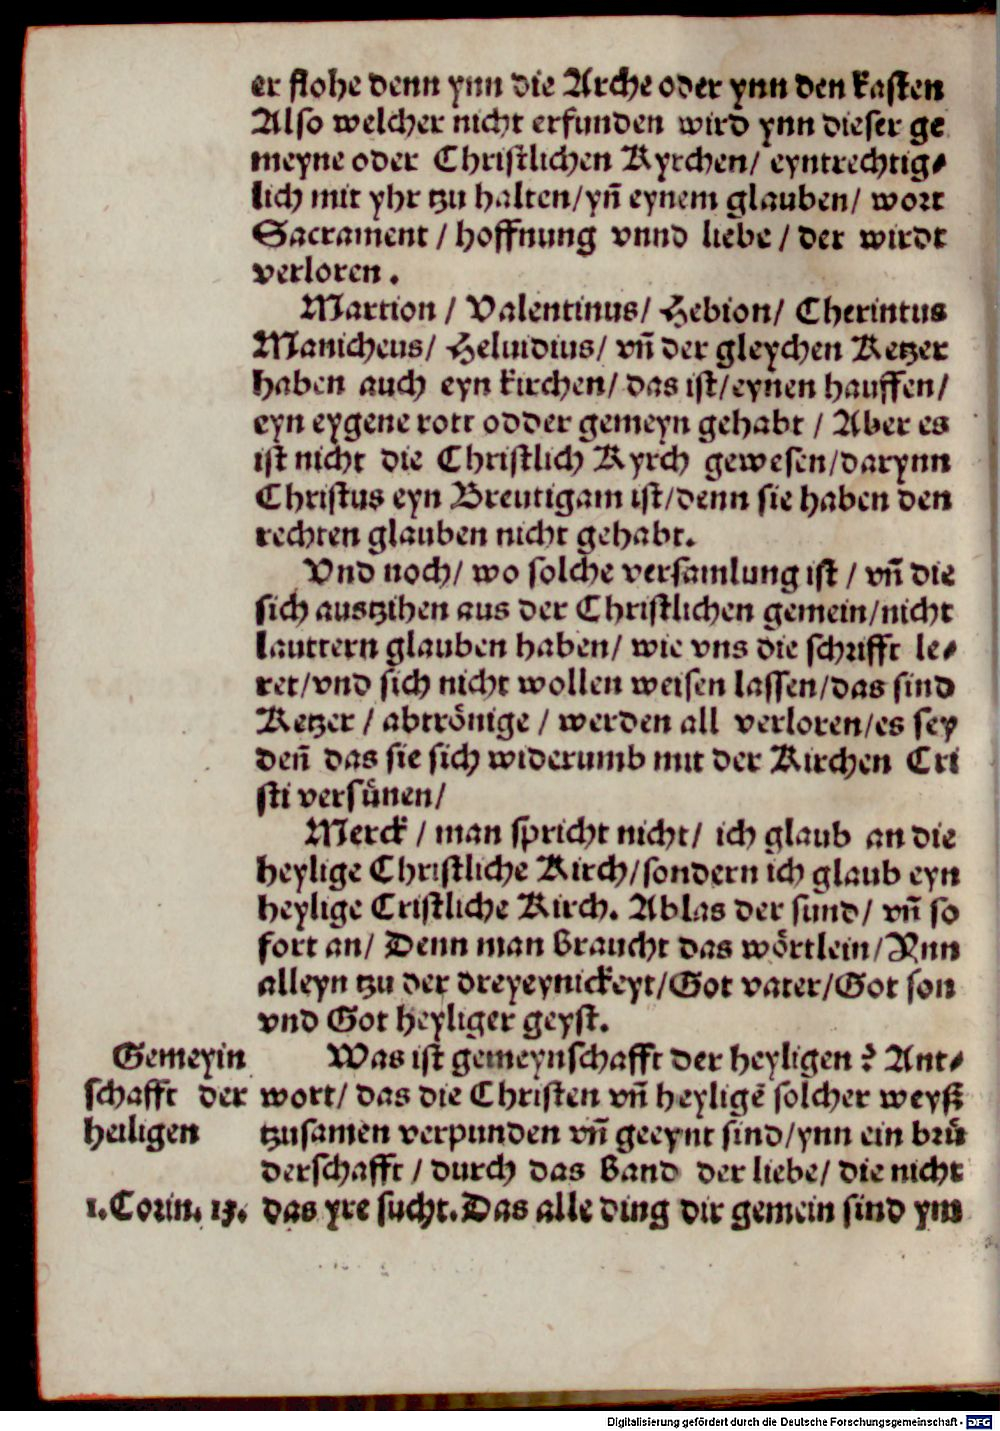 er flohe denn ynn die Arche oder ynn den kasten
Also welcher nicht erfunden wird ynn dieser ge
meyne oder Christlichen Kyrchen/ eyntrechtig⸗
lich mit yhr tzu halten/yñ eynem glauben/ wort
Sacrament / hoffnung vnnd liebe / der wirdt
verloren .
Martion / Valentinus/ Hebion/ Cherintus
Manicheus/ Heluidius/ vñ der gleychen Ketzer
haben auch eyn kirchen/ das ist/eynen hauffen/
eyn eygene rott odder gemeyn gehabt / Aber es
ist nicht die Christlich Kyrch gewesen/darynn
Christus eyn Breutigam ist/denn sie haben den
rechten glauben nicht gehabt.
Vnd noch/ wo solche versamlung ist / vñ die
sich austzihen aus der Christlichen gemein/nicht
lauttern glauben haben/ wie vns die schrifft le⸗
ret/vnd sich nicht wollen weisen lassen/das sind
Ketzer / abtrönige / werden all verloren/es sey
deñ das sie sich widerumb mit der Kirchen Cri
sti versünen/
Merck / man spricht nicht/ ich glaub an die
heylige Christliche Kirch/sondern ich glaub eyn
heylige Cristliche Kirch. Ablas der sund/ vñ so
fort an/ Denn man braucht das wörtlein/Ynn
alleyn tzu der dreyeynickeyt/Got vater/Got son
vnd Got heyliger geyst.
Gemeyin
schafft der
heiligen
Was ist gemeynschafft der heyligen ? Ant⸗
wort/ das die Christen vñ heyligē solcher weyß
tzusamen verpunden vñ geeynt sind/ynn ein brü
derschafft / durch das band der liebe/ die nicht
1.Corin. 13.
das yre sucht.Das alle ding dir gemein sind ym
Digitalisierung gefördert durch die Deutsche Forschungsgemeinschaft - DFG